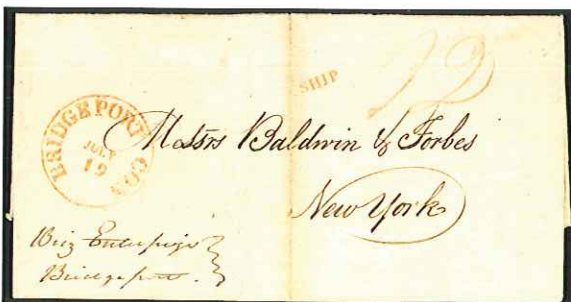 BRIDGEPORT
CON
JULY
19
SHIP
12
Messrs Baldwin & Forbes
New York
Brig Enterprize
Bridgeport.